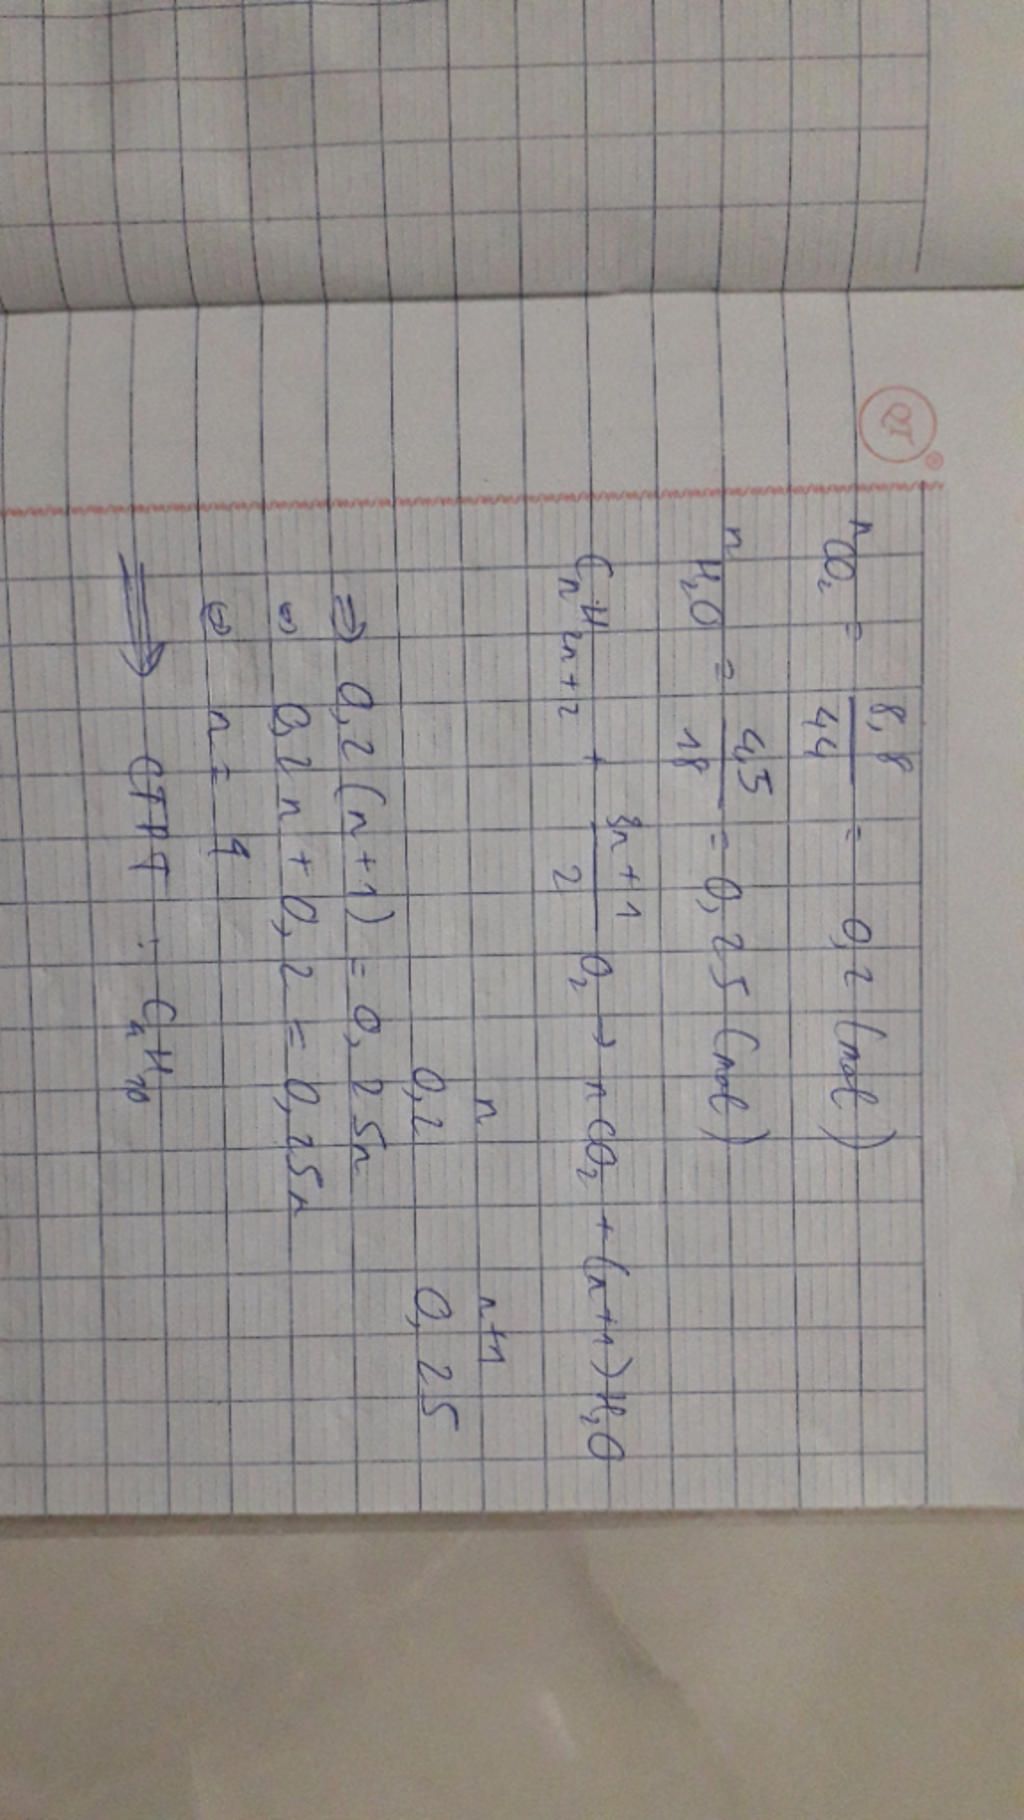 QT
nCO₂ = 8,8/44 = 0,2 (mol)
nH₂O = 4,5/18 = 0,25 (mol)
CₙH₂ₙ₊₂ + (3n+1)/2 O₂ → nCO₂ + (n+1)H₂O
n n+1
0,2 0,25
⇒ 0,2(n+1) = 0,25n
⇔ 0,2n + 0,2 = 0,25n
⇔ n = 4
⟹ CTPT : C₄H₁₀